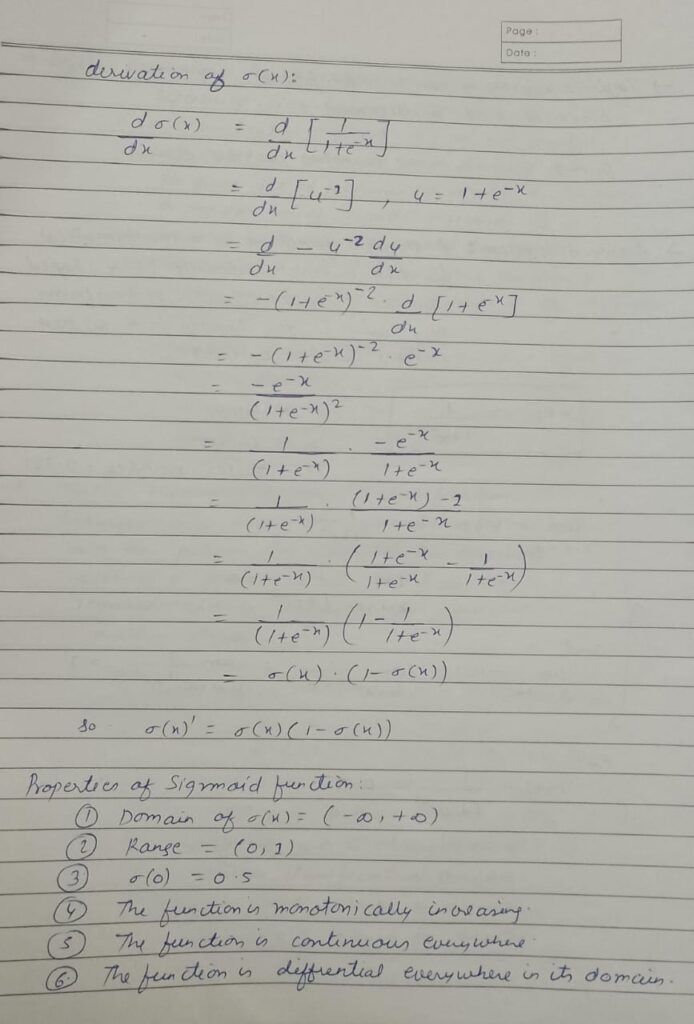 Page :
Date :
derivation of σ(x):
d σ(x)/dx = d/dx [1/(1+e^-x)]
= d/dx [u^-1] , u = 1+e^-x
= d/dx - u^-2 du/dx
= -(1+e^-x)^-2 . d/dx [1+e^-x]
= -(1+e^-x)^-2 . e^-x
= -e^-x/(1+e^-x)^2
= 1/(1+e^-x) . -e^-x/1+e^-x
= 1/(1+e^-x) . (1+e^-x) -1/1+e^-x
= 1/(1+e^-x) . (1+e^-x/1+e^-x - 1/1+e^-x)
= 1/(1+e^-x) (1 - 1/1+e^-x)
= σ(x) . (1-σ(x))
so σ(x)' = σ(x)(1-σ(x))
Properties of Sigmoid function:
① Domain of σ(x) = (-∞, +∞)
② Range = (0,1)
③ σ(0) = 0.5
④ The function is monotonically increasing.
⑤ The function is continuous everywhere.
⑥ The function is diffrential everywhere in its domain.